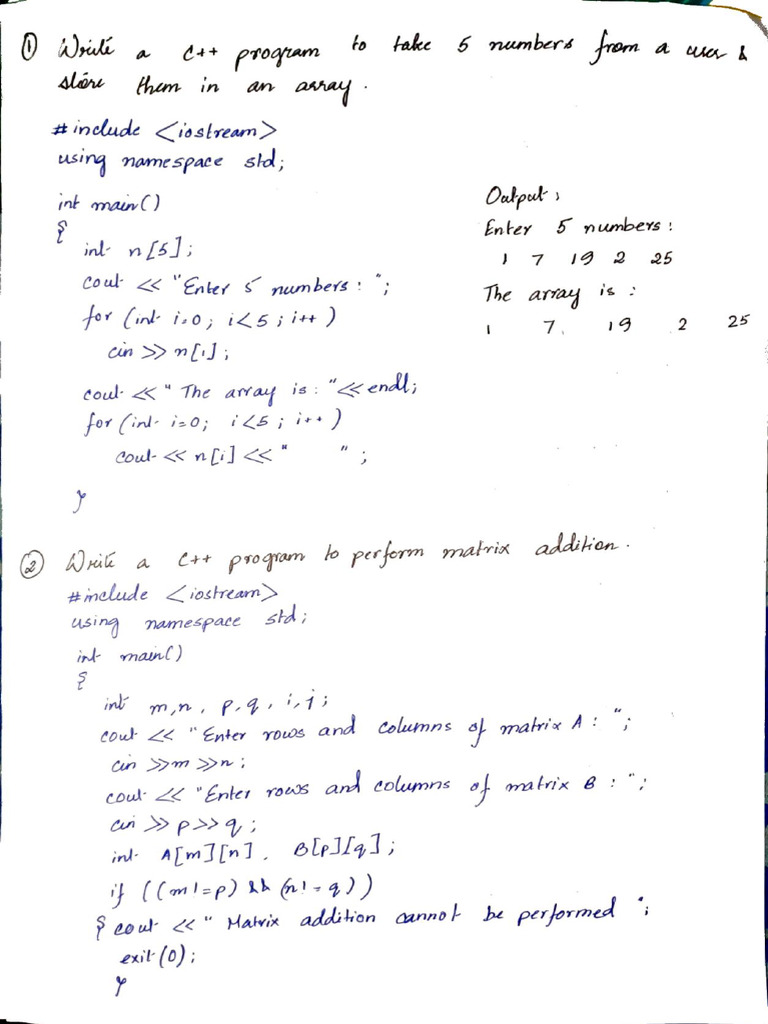 ① Write a C++ program to take 5 numbers from a user &
store them in an array.
#include <iostream>
using namespace std;
int main()
{
int n[5];
cout << "Enter 5 numbers: ";
for (int i=0; i<5; i++)
cin >> n[i];
cout << " The array is: " << endl;
for (int i=0; i<5; i++)
cout << n[i] << "    ";
}
Output:
Enter 5 numbers:
1 7 19 2 25
The array is:
1 7 19 2 25
② Write a C++ program to perform matrix addition.
#include <iostream>
using namespace std;
int main()
{
int m,n, p,q, i,j;
cout << "Enter rows and columns of matrix A: ";
cin >>m >>n;
cout << "Enter rows and columns of matrix B : ";
cin >> p >> q;
int A[m][n], B[p][q];
if ((m!=p) && (n!=q))
{ cout << " Matrix addition cannot be performed ";
exit(0);
}